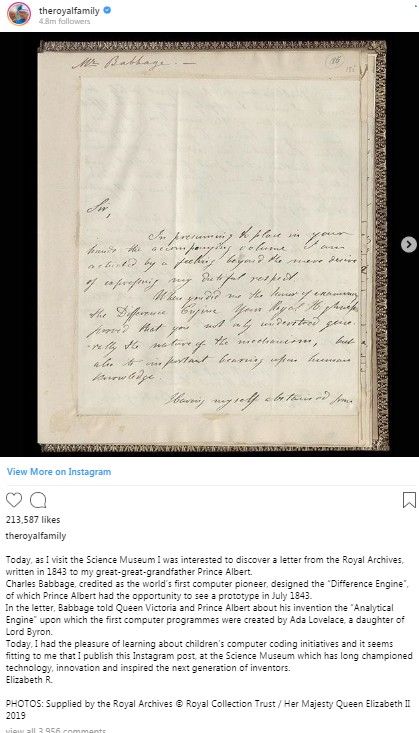 theroyalfamily
4.8m followers
Mr Babbage. —
186
Sir,
In presuming to place in your
hands the accompanying volume I am
actuated by a feeling beyond the mere desire
of expressing my dutiful respect.
When you did me the honor of examining
the Difference Engine Your Royal Highness
proved that you not only understood gene-
-rally the nature of the mechanism, but
also its important bearing upon human
knowledge.
Having myself abstained from
View More on Instagram
213,587 likes
theroyalfamily
Today, as I visit the Science Museum I was interested to discover a letter from the Royal Archives,
written in 1843 to my great-great-grandfather Prince Albert.
Charles Babbage, credited as the world's first computer pioneer, designed the "Difference Engine",
of which Prince Albert had the opportunity to see a prototype in July 1843.
In the letter, Babbage told Queen Victoria and Prince Albert about his invention the "Analytical
Engine" upon which the first computer programmes were created by Ada Lovelace, a daughter of
Lord Byron.
Today, I had the pleasure of learning about children's computer coding initiatives and it seems
fitting to me that I publish this Instagram post, at the Science Museum which has long championed
technology, innovation and inspired the next generation of inventors.
Elizabeth R.
PHOTOS: Supplied by the Royal Archives © Royal Collection Trust / Her Majesty Queen Elizabeth II
2019
view all 3,956 comments